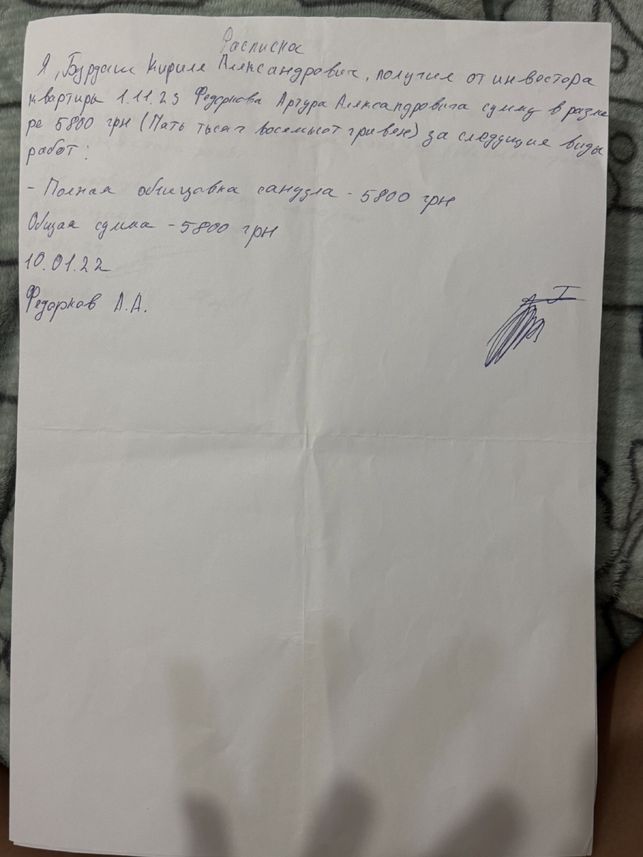 Расписка
Я, Бурдаш Кирилл Александрович, получил от инвестора
квартиры 1.11.23 Федоркова Артура Александровича сумму в разме
ре 5800 грн (Пять тысяч восемьсот гривен) за следущие виды
работ:
- Полная облицовка санузла - 5800 грн
Общая сумма - 5800 грн
10.01.22
Федорков А.А.